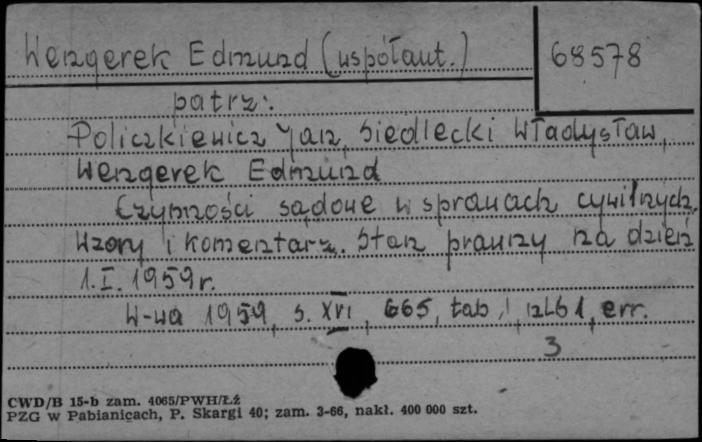 Wengerek Edmund (współaut.)
68578
patrz:
Policzkiewicz Jan, Siedlecki Władysław,
Wengerek Edmund
Czynności sądowe w sprawach cywilnych.
Wzory i komentarz. Stan prawny na dzień
1.I.1959r.
W-wa 1959, s. XVI, 665, tab, err.
3
CWD/B 15-b zam. 4065/PWH/Łź
PZG w Pabianicach, P. Skargi 40; zam. 3-66, nakł. 400 000 szt.